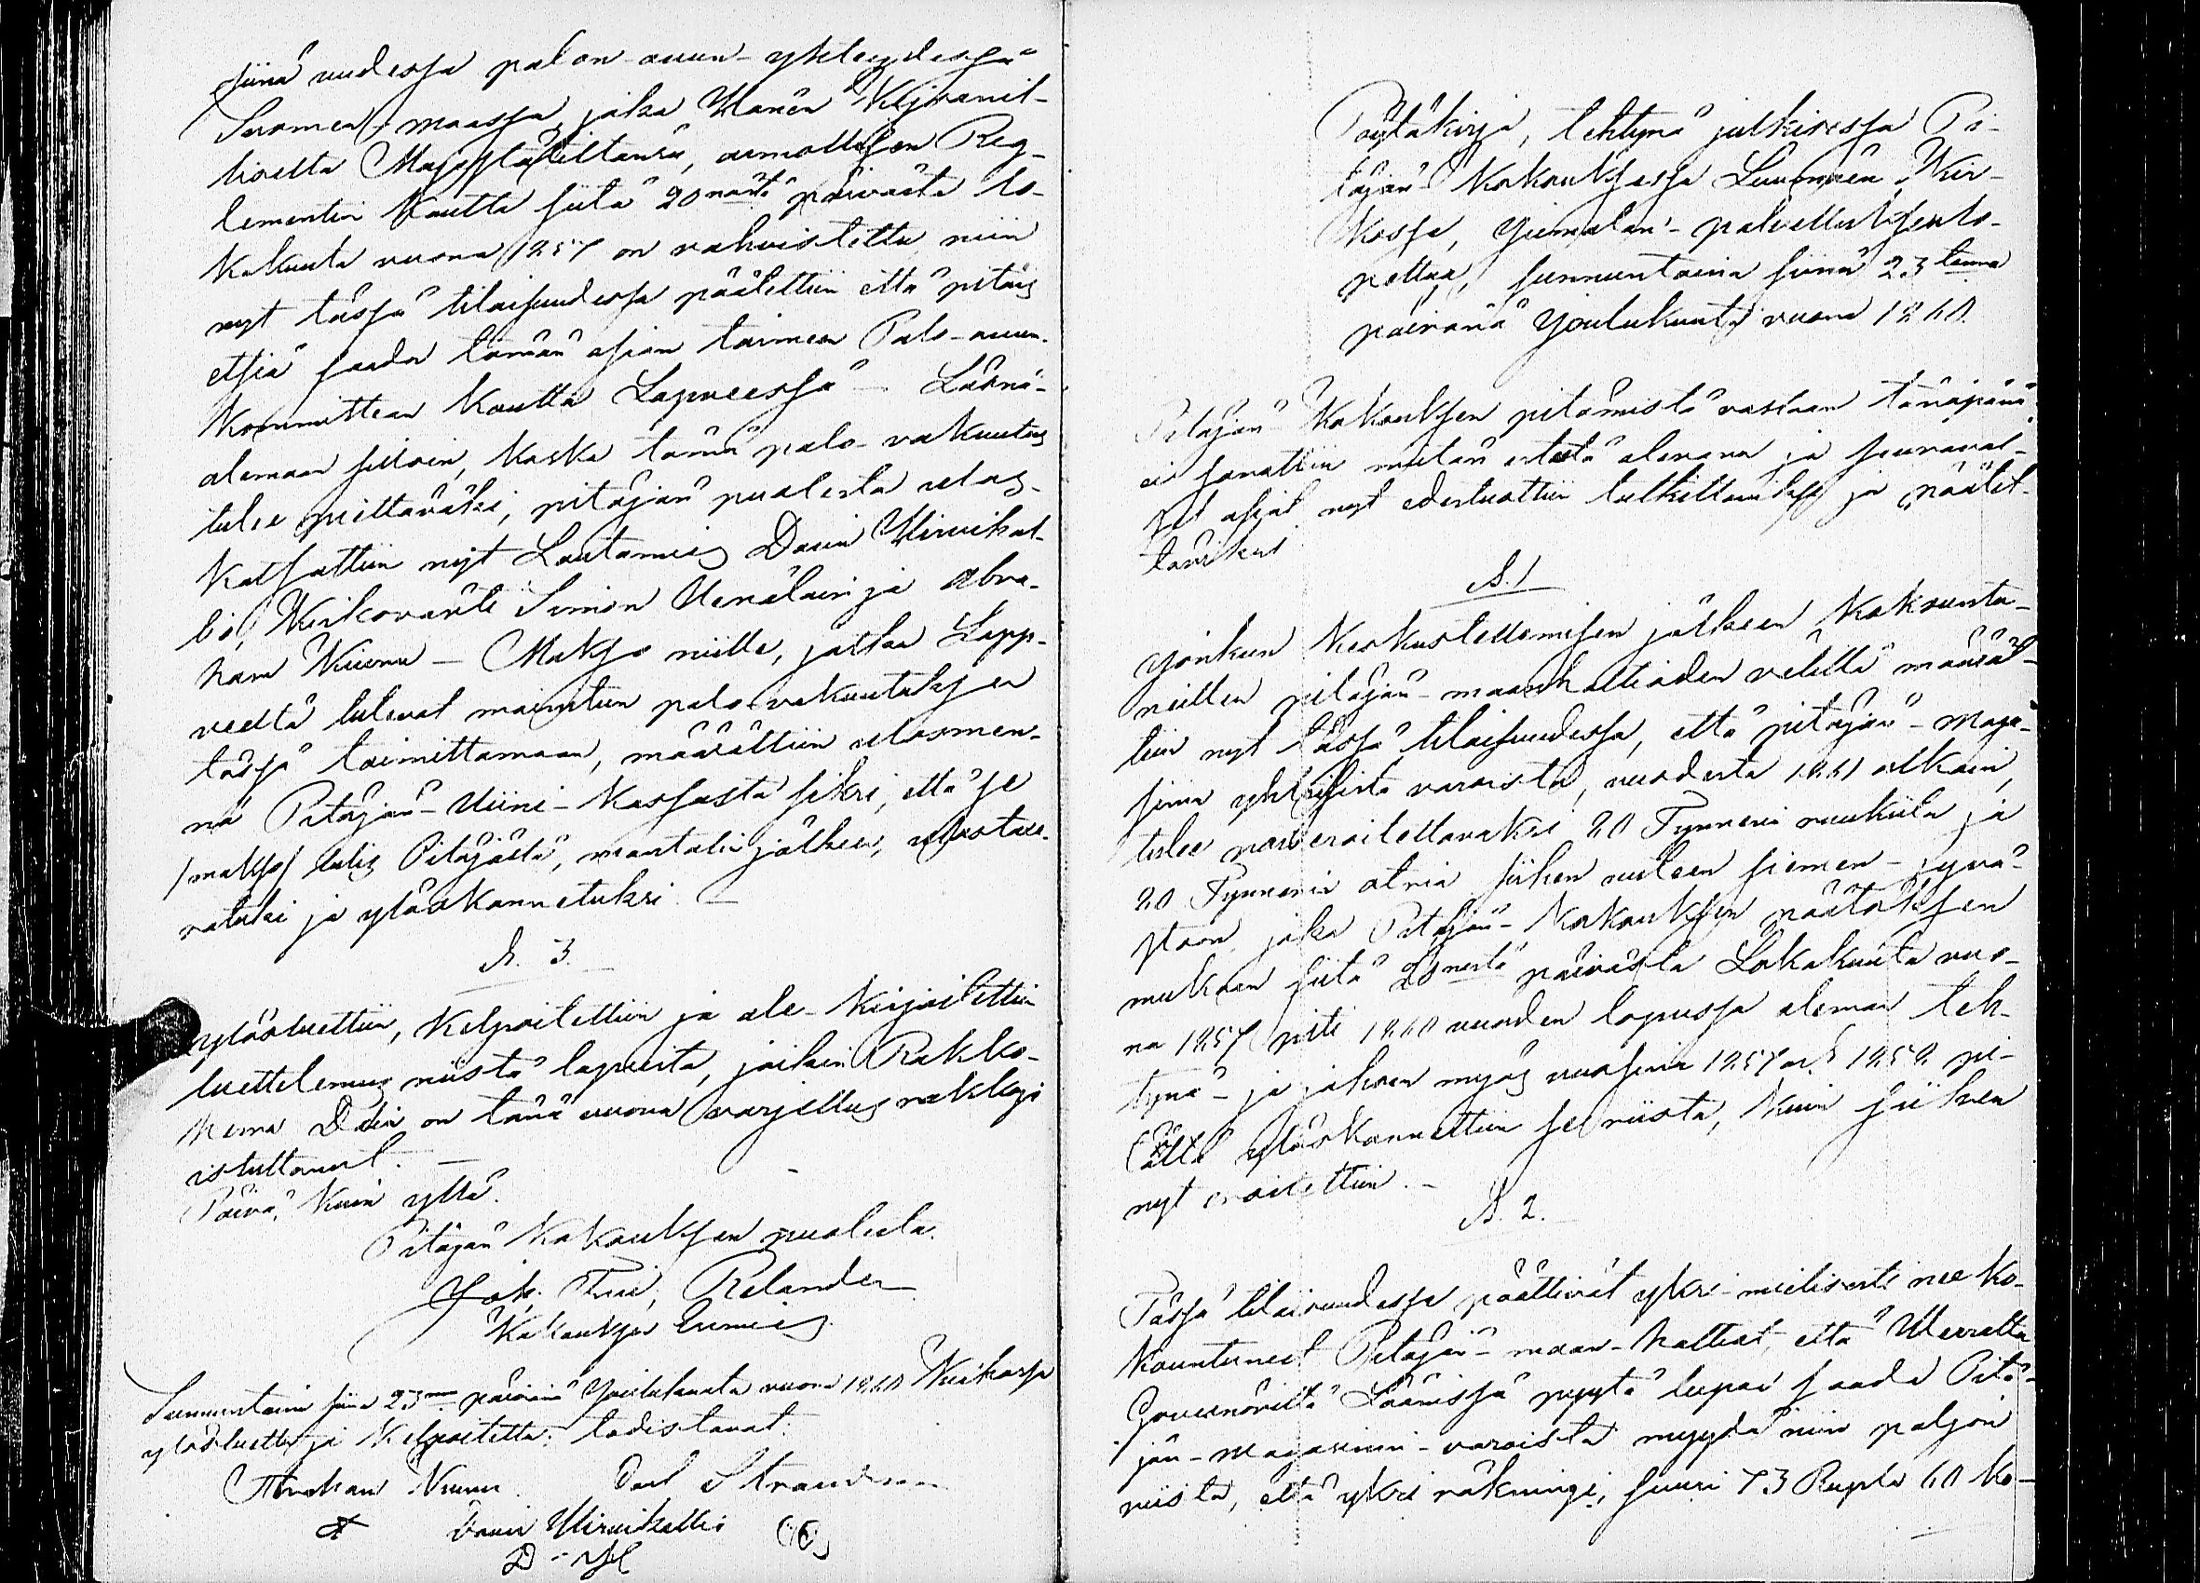 siinä uudessa palon-avun-yhteydessä
Suomen-maassa, joka Hänen Keisaril-
liselta Majestätiltänsä, armollisen Reg-
lementin kautta siitä 20nästä päivästä lo-
kakuuta vuona 1857 on vahvistettu, niin
nyt tässä tilaisuudessa päätettiin että pitäis
etsiä saada tämän asian toimeen Palo-avun-
kommittean kautta Lapveessä — Läsnä-
olemaan silloin, koska tämä palo-vakuutus
tulee pitettäväksi, pitäjän puolesta ulos-
katsottiin nyt Lautamies Davi Hirvikal-
lio, Kirkovärti Simon Venäläin ja Abra-
ham Kiuru — Makso niille, jotka Lapp-
veeltä tulevat mainitun palovakuutuksen
tässä toimittamaan, määrättiin ulosmen-
nä Pitäjän-Viini-kassasta siksi, että se
/makso/ tulis Pitäjästä, mantalin jälkeen, ulostaa-
ratuksi ja ylöskannetuksi. —
§. 3.
ylösluettiin, kelpoitettiin ja ale-kirjoitettiin
luettelemus niistä lapsista, joihin Rokko-
herra Dain on tänä vuona varjellus rokkoja
istuttanut. —
Päivä, kuin yllä.
Pitäjän kokouksen puolesta.
Joh. Fred. Relander
Kokouksen Esimies.
Sunnuntaina siinä 23na päivänä Joulukuuta vuona 1860 Kirkossa
ylösluettu ja kelpoitettu; todistavat:
Abraham Kiuru. Carl Strandman
Davi Hirvikallio
D H
Pöytäkirja, tehtynä julkisessa Pi-
täjän kokouksessa Luumäen Kir-
kossa, Jumalan-palvelluksen lo-
pettua, sunnuntaina siinä 23tenna
päivänä Joulukuuta vuona 1860.
Pitäjän kokouksen pitämistä vastaan tänäpänä
ei sanottu mitän estettä olevana ja seuraavai-
set asiat nyt edestuottiin tutkittaviksi ja päätet-
täviksi
§. 1
Jonkun keskustellemisen jälkeen kokountu-
neitten pitäjän-maanhaltioiden välillä määrät-
tiin nyt tässä tilaisuudessa, että pitäjän-maga-
sinin yhteisistä varoista, vuodesta 1861 alkain,
tulee eroitettavaksi 20 Tynneria ruukiita ja
20 Tynneria otria siihen uuteen siemen-jyvä-
stoon, joka Pitäjän-kokouksen päätöksen
mukaan siitä 20nestä päivästä Lokakuuta vuo-
na 1857 piti 1860 vuoden lopussa oleman teh-
tynä — ja johon myös vuosina 1857 och 1858 pi-
tältä ylöskannettiin se riista, kuin siihen
nyt eroitettiin. —
§. 2.
Tässä tilaisuudessa päättivät yksi-mielisesti nee ko-
kountuneet Pitäjän-maan-haltiat, että Herralta
Guvernöriltä Läänissä pyytä lupaa saada Pitä-
jän-magasiini-varoista myydä niin paljon
riista, että yksi räkningi, suuri 73 Rupla 60 ko-